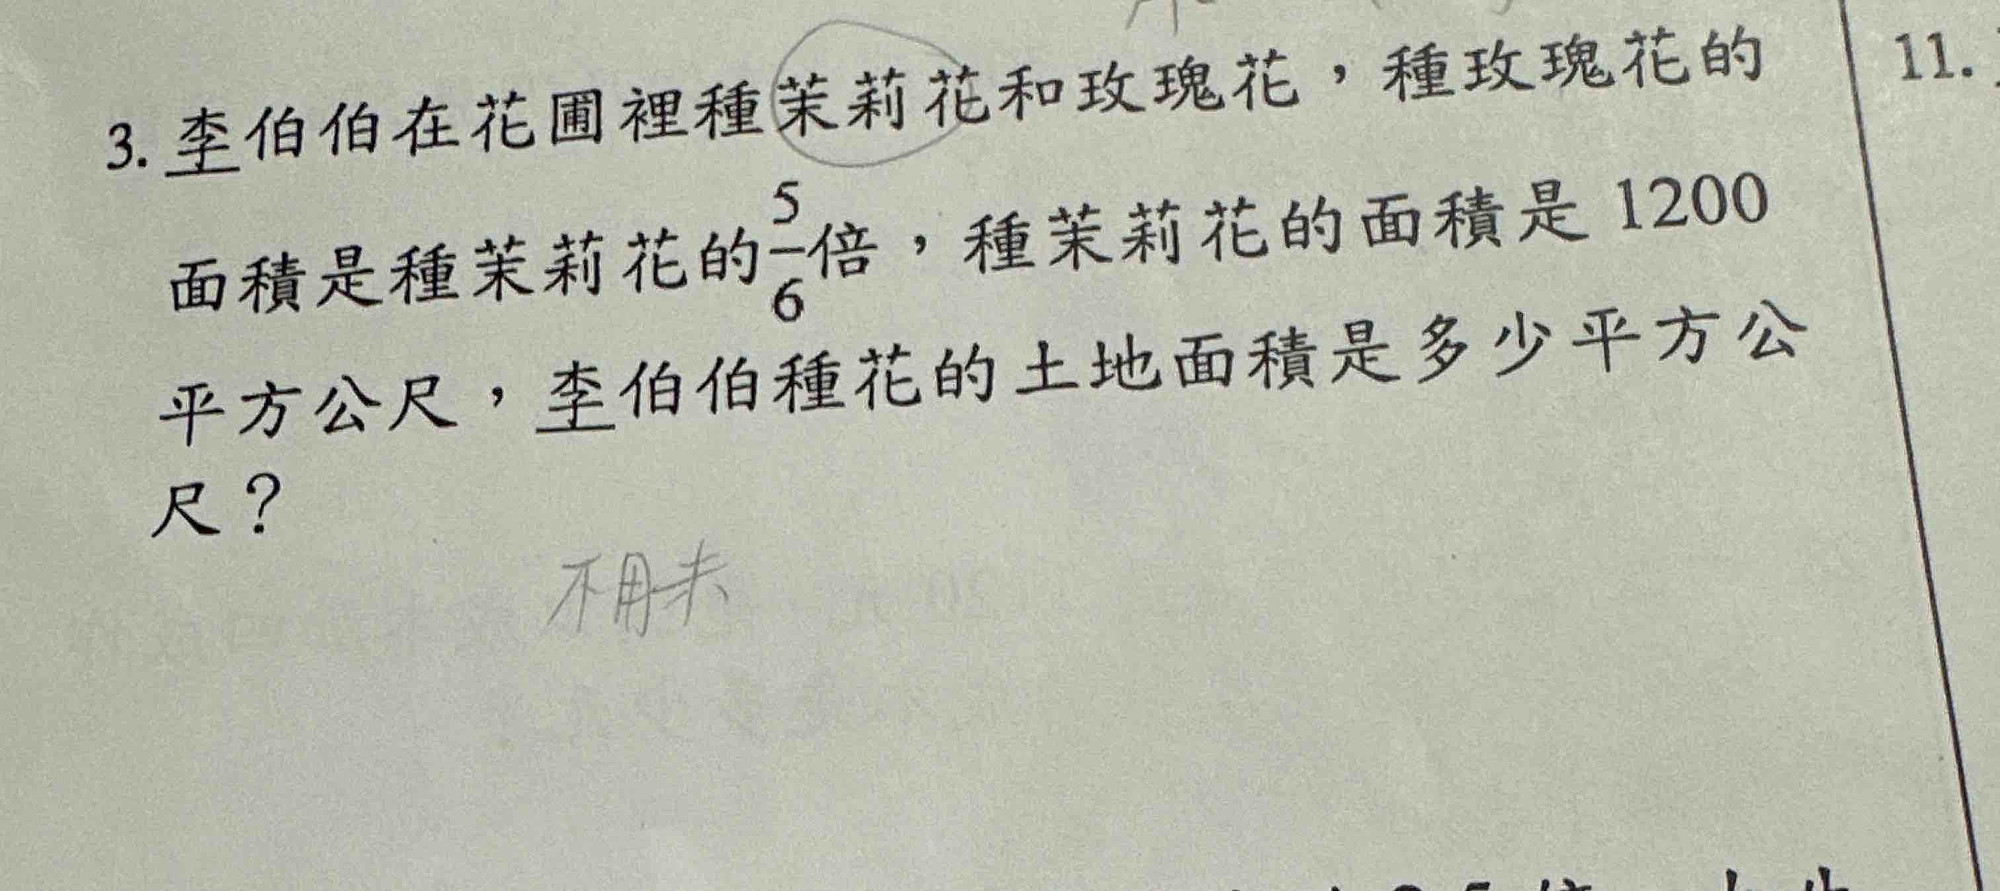 3. 李伯伯在花圃裡種茉莉花和玫瑰花，種玫瑰花的
面積是種茉莉花的5/6倍，種茉莉花的面積是 1200
平方公尺，李伯伯種花的土地面積是多少平方公
尺？
不用求
11.